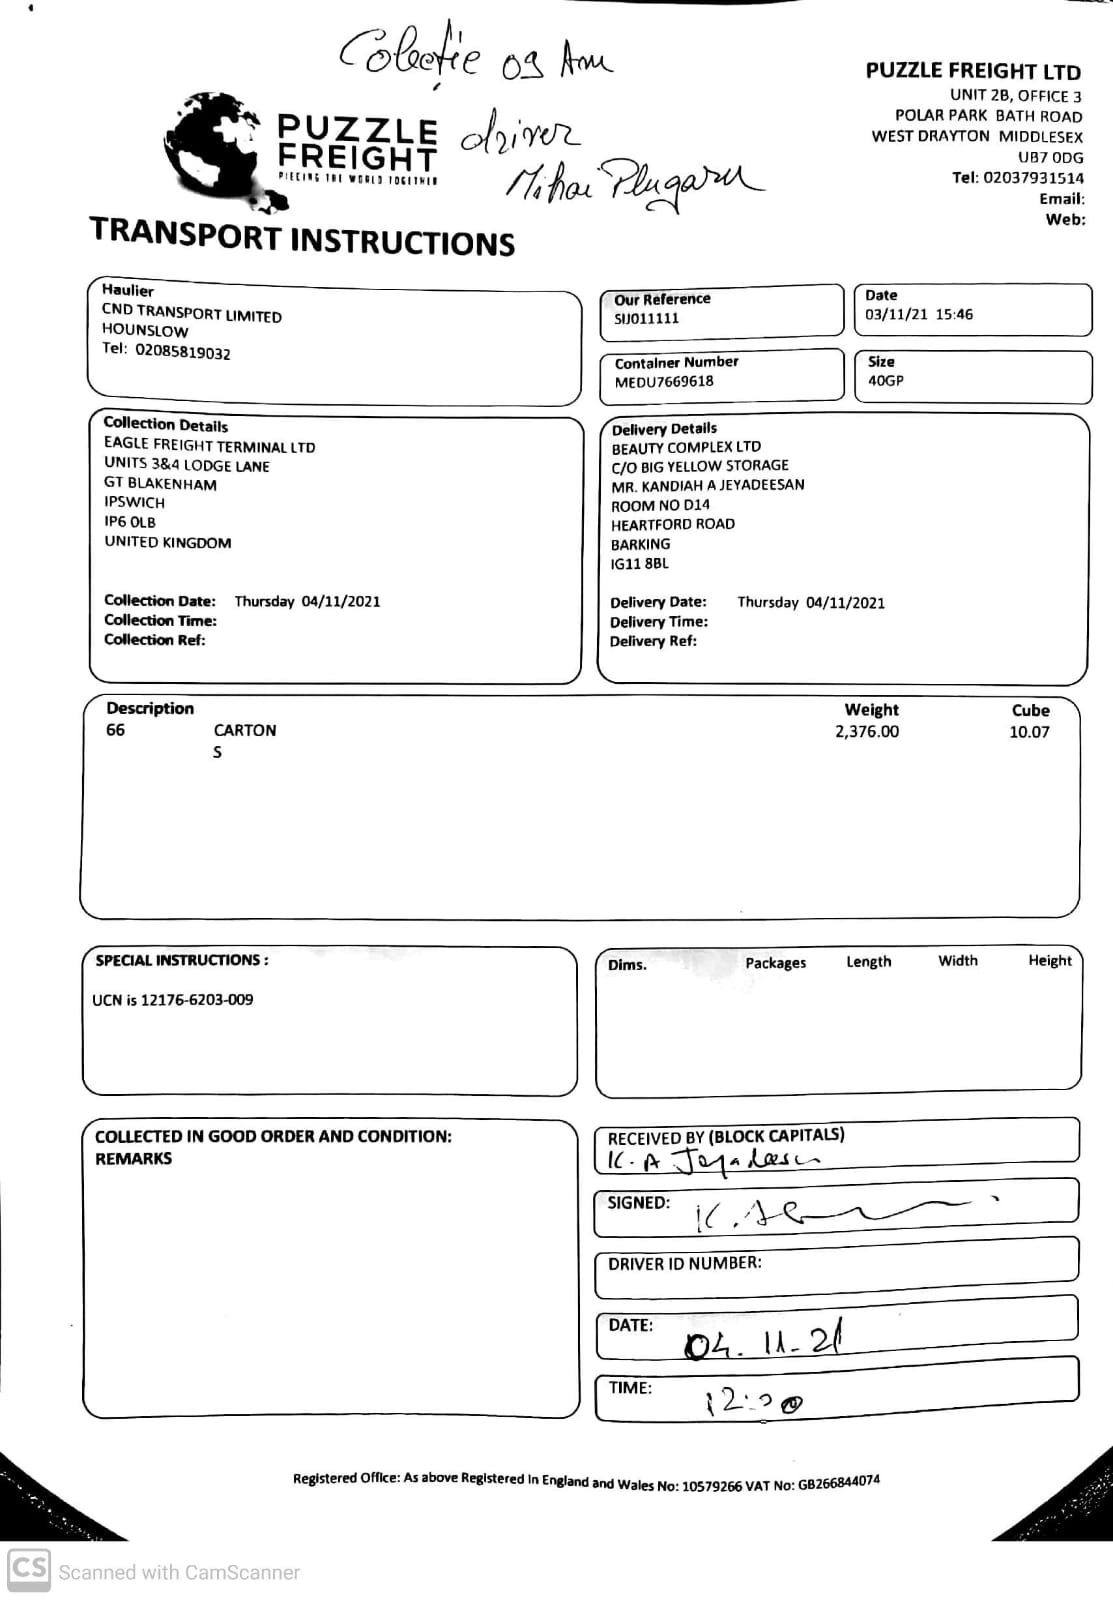 Colecție 09 Am
driver
Mihai Plugaru
PUZZLE
FREIGHT
PIECING THE WORLD TOGETHER
PUZZLE FREIGHT LTD
UNIT 2B, OFFICE 3
POLAR PARK BATH ROAD
WEST DRAYTON MIDDLESEX
UB7 0DG
Tel: 02037931514
Email:
Web:
TRANSPORT INSTRUCTIONS
Haulier
CND TRANSPORT LIMITED
HOUNSLOW
Tel: 02085819032
Our Reference
SIJ011111
Date
03/11/21 15:46
Container Number
MEDU7669618
Size
40GP
Collection Details
EAGLE FREIGHT TERMINAL LTD
UNITS 3&4 LODGE LANE
GT BLAKENHAM
IPSWICH
IP6 0LB
UNITED KINGDOM
Collection Date: Thursday 04/11/2021
Collection Time:
Collection Ref:
Delivery Details
BEAUTY COMPLEX LTD
C/O BIG YELLOW STORAGE
MR. KANDIAH A JEYADEESAN
ROOM NO D14
HEARTFORD ROAD
BARKING
IG11 8BL
Delivery Date: Thursday 04/11/2021
Delivery Time:
Delivery Ref:
Description Weight Cube
66 CARTON 2,376.00 10.07
S
SPECIAL INSTRUCTIONS :
UCN is 12176-6203-009
Dims. Packages Length Width Height
COLLECTED IN GOOD ORDER AND CONDITION:
REMARKS
RECEIVED BY (BLOCK CAPITALS)
K. A Jeyadeesan
SIGNED:
DRIVER ID NUMBER:
DATE: 04.11-21
TIME:
Registered Office: As above Registered in England and Wales No: 10579266 VAT No: GB266844074
CS Scanned with CamScanner